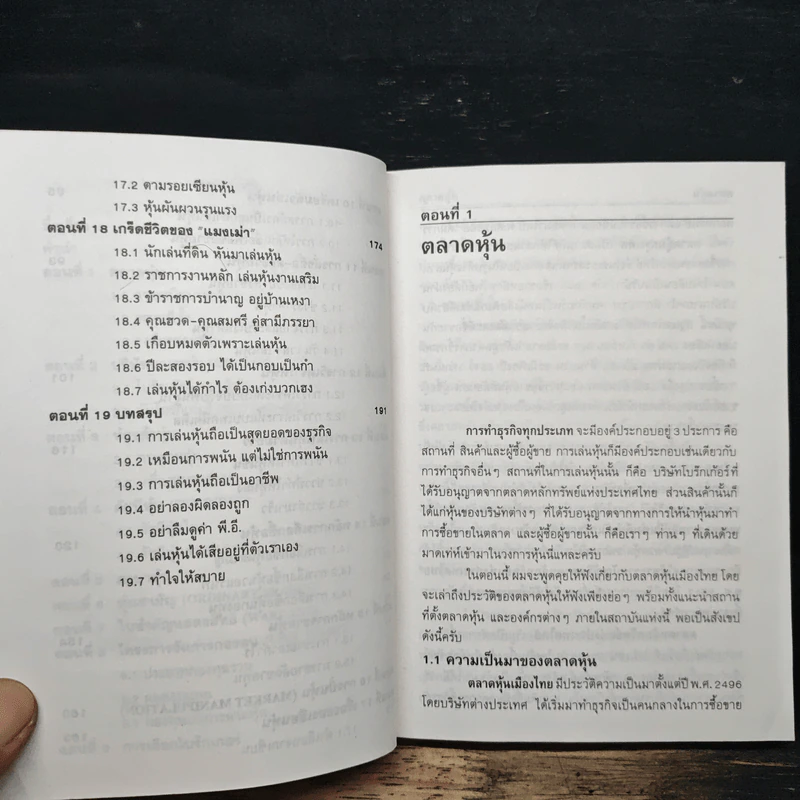 17.2 ตามรอยเซียนหุ้น
17.3 หุ้นผันผวนรุนแรง
ตอนที่ 18 เกร็ดชีวิตของ "แมงเม่า" 174
18.1 นักเล่นที่ดิน หันมาเล่นหุ้น
18.2 ราชการงานหลัก เล่นหุ้นงานเสริม
18.3 ข้าราชการบำนาญ อยู่บ้านเหงา
18.4 คุณฮวด-คุณสมศรี คู่สามีภรรยา
18.5 เกือบหมดตัวเพราะเล่นหุ้น
18.6 ปีละสองรอบ ได้เป็นกอบเป็นกำ
18.7 เล่นหุ้นได้กำไร ต้องเก่งบวกเฮง
ตอนที่ 19 บทสรุป 191
19.1 การเล่นหุ้นถือเป็นสุดยอดของธุรกิจ
19.2 เหมือนการพนัน แต่ไม่ใช่การพนัน
19.3 การเล่นหุ้นถือเป็นอาชีพ
19.4 อย่าลองผิดลองถูก
19.5 อย่าลืมดูค่า พี.อี.
19.6 เล่นหุ้นได้เสียอยู่ที่ตัวเราเอง
19.7 ทำใจให้สบาย
ตอนที่ 1
ตลาดหุ้น
การทำธุรกิจทุกประเภท จะมีองค์ประกอบอยู่ 3 ประการ คือ
สถานที่ สินค้าและผู้ซื้อผู้ขาย การเล่นหุ้นก็มีองค์ประกอบเช่นเดียวกับ
การทำธุรกิจอื่นๆ สถานที่ในการเล่นหุ้นนั้น ก็คือ บริษัทโบร๊กเก้อร์ที่
ได้รับอนุญาตจากตลาดหลักทรัพย์แห่งประเทศไทย ส่วนสินค้านั้นก็
ได้แก่หุ้นของบริษัทต่างๆ ที่ได้รับอนุญาตจากทางการให้นำหุ้นมาทำ
การซื้อขายในตลาด และผู้ซื้อผู้ขายนั้น ก็คือเราๆ ท่านๆ ที่เดินด้วย
มาดเท่ห์เข้ามาในวงการหุ้นนี่แหละครับ
ในตอนนี้ ผมจะพูดคุยให้ฟังเกี่ยวกับตลาดหุ้นเมืองไทย โดย
จะเล่าถึงประวัติของตลาดหุ้นให้ฟังเพียงย่อๆ พร้อมทั้งแนะนำสถาน
ที่ตั้งตลาดหุ้น และองค์กรต่างๆ ภายในสถาบันแห่งนี้ พอเป็นสังเขป
ดังนี้ครับ
1.1 ความเป็นมาของตลาดหุ้น
ตลาดหุ้นเมืองไทย มีประวัติความเป็นมาตั้งแต่ปี พ.ศ. 2496
โดยบริษัทต่างประเทศ ได้เริ่มมาทำธุรกิจเป็นคนกลางในการซื้อขาย